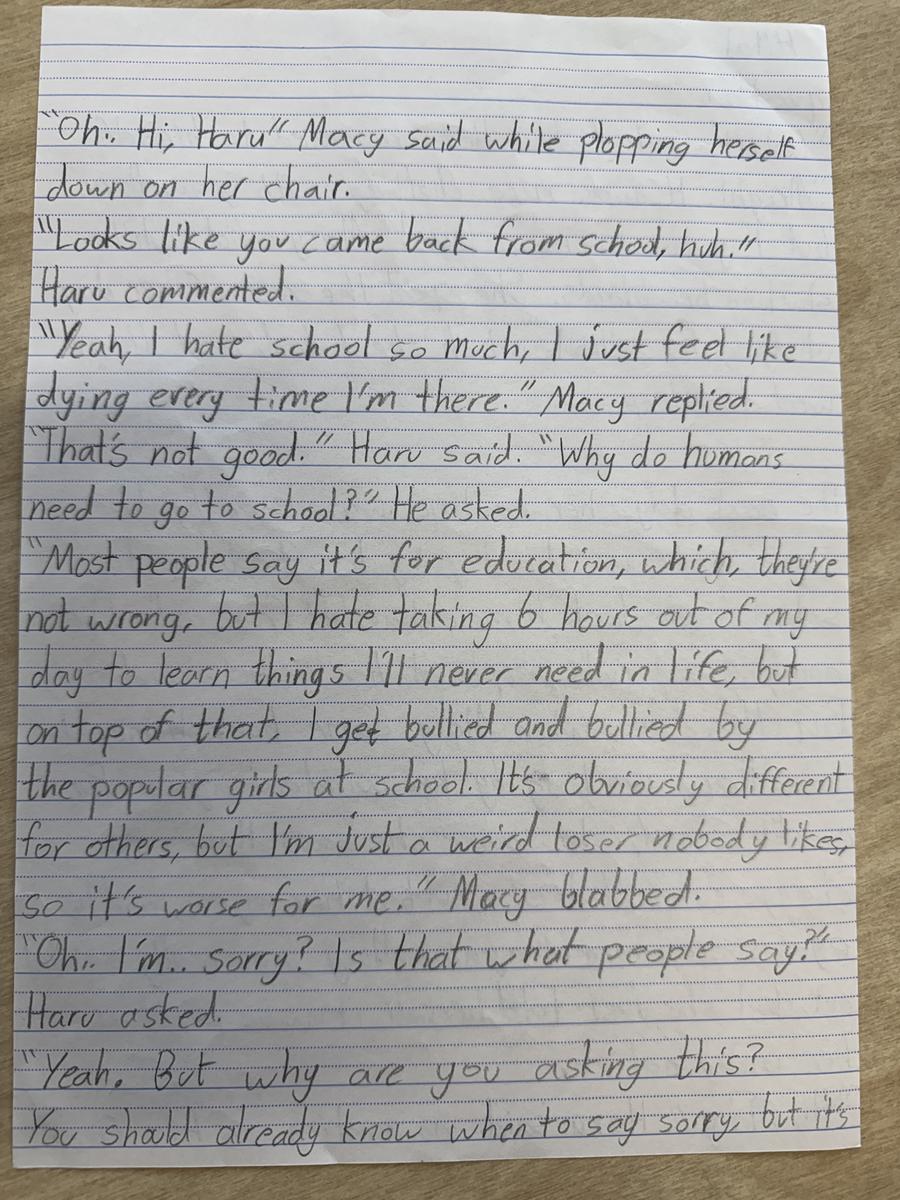 "Oh.. Hi, Haru" Macy said while plopping herself
down on her chair.
"Looks like you came back from school, huh."
Haru commented.
"Yeah, I hate school so much, I just feel like
dying every time I'm there." Macy replied.
"That's not good." Haru said. "Why do humans
need to go to school?" He asked.
"Most people say it's for education, which, they're
not wrong, but I hate taking 6 hours out of my
day to learn things I'll never need in life, but
on top of that, I get bullied and bullied by
the popular girls at school. It's obviously different
for others, but I'm just a weird loser nobody likes,
so it's worse for me." Macy blabbed.
"Oh.. I'm.. sorry? Is that what people say?"
Haru asked.
"Yeah. But why are you asking this?
You should already know when to say sorry, but it's